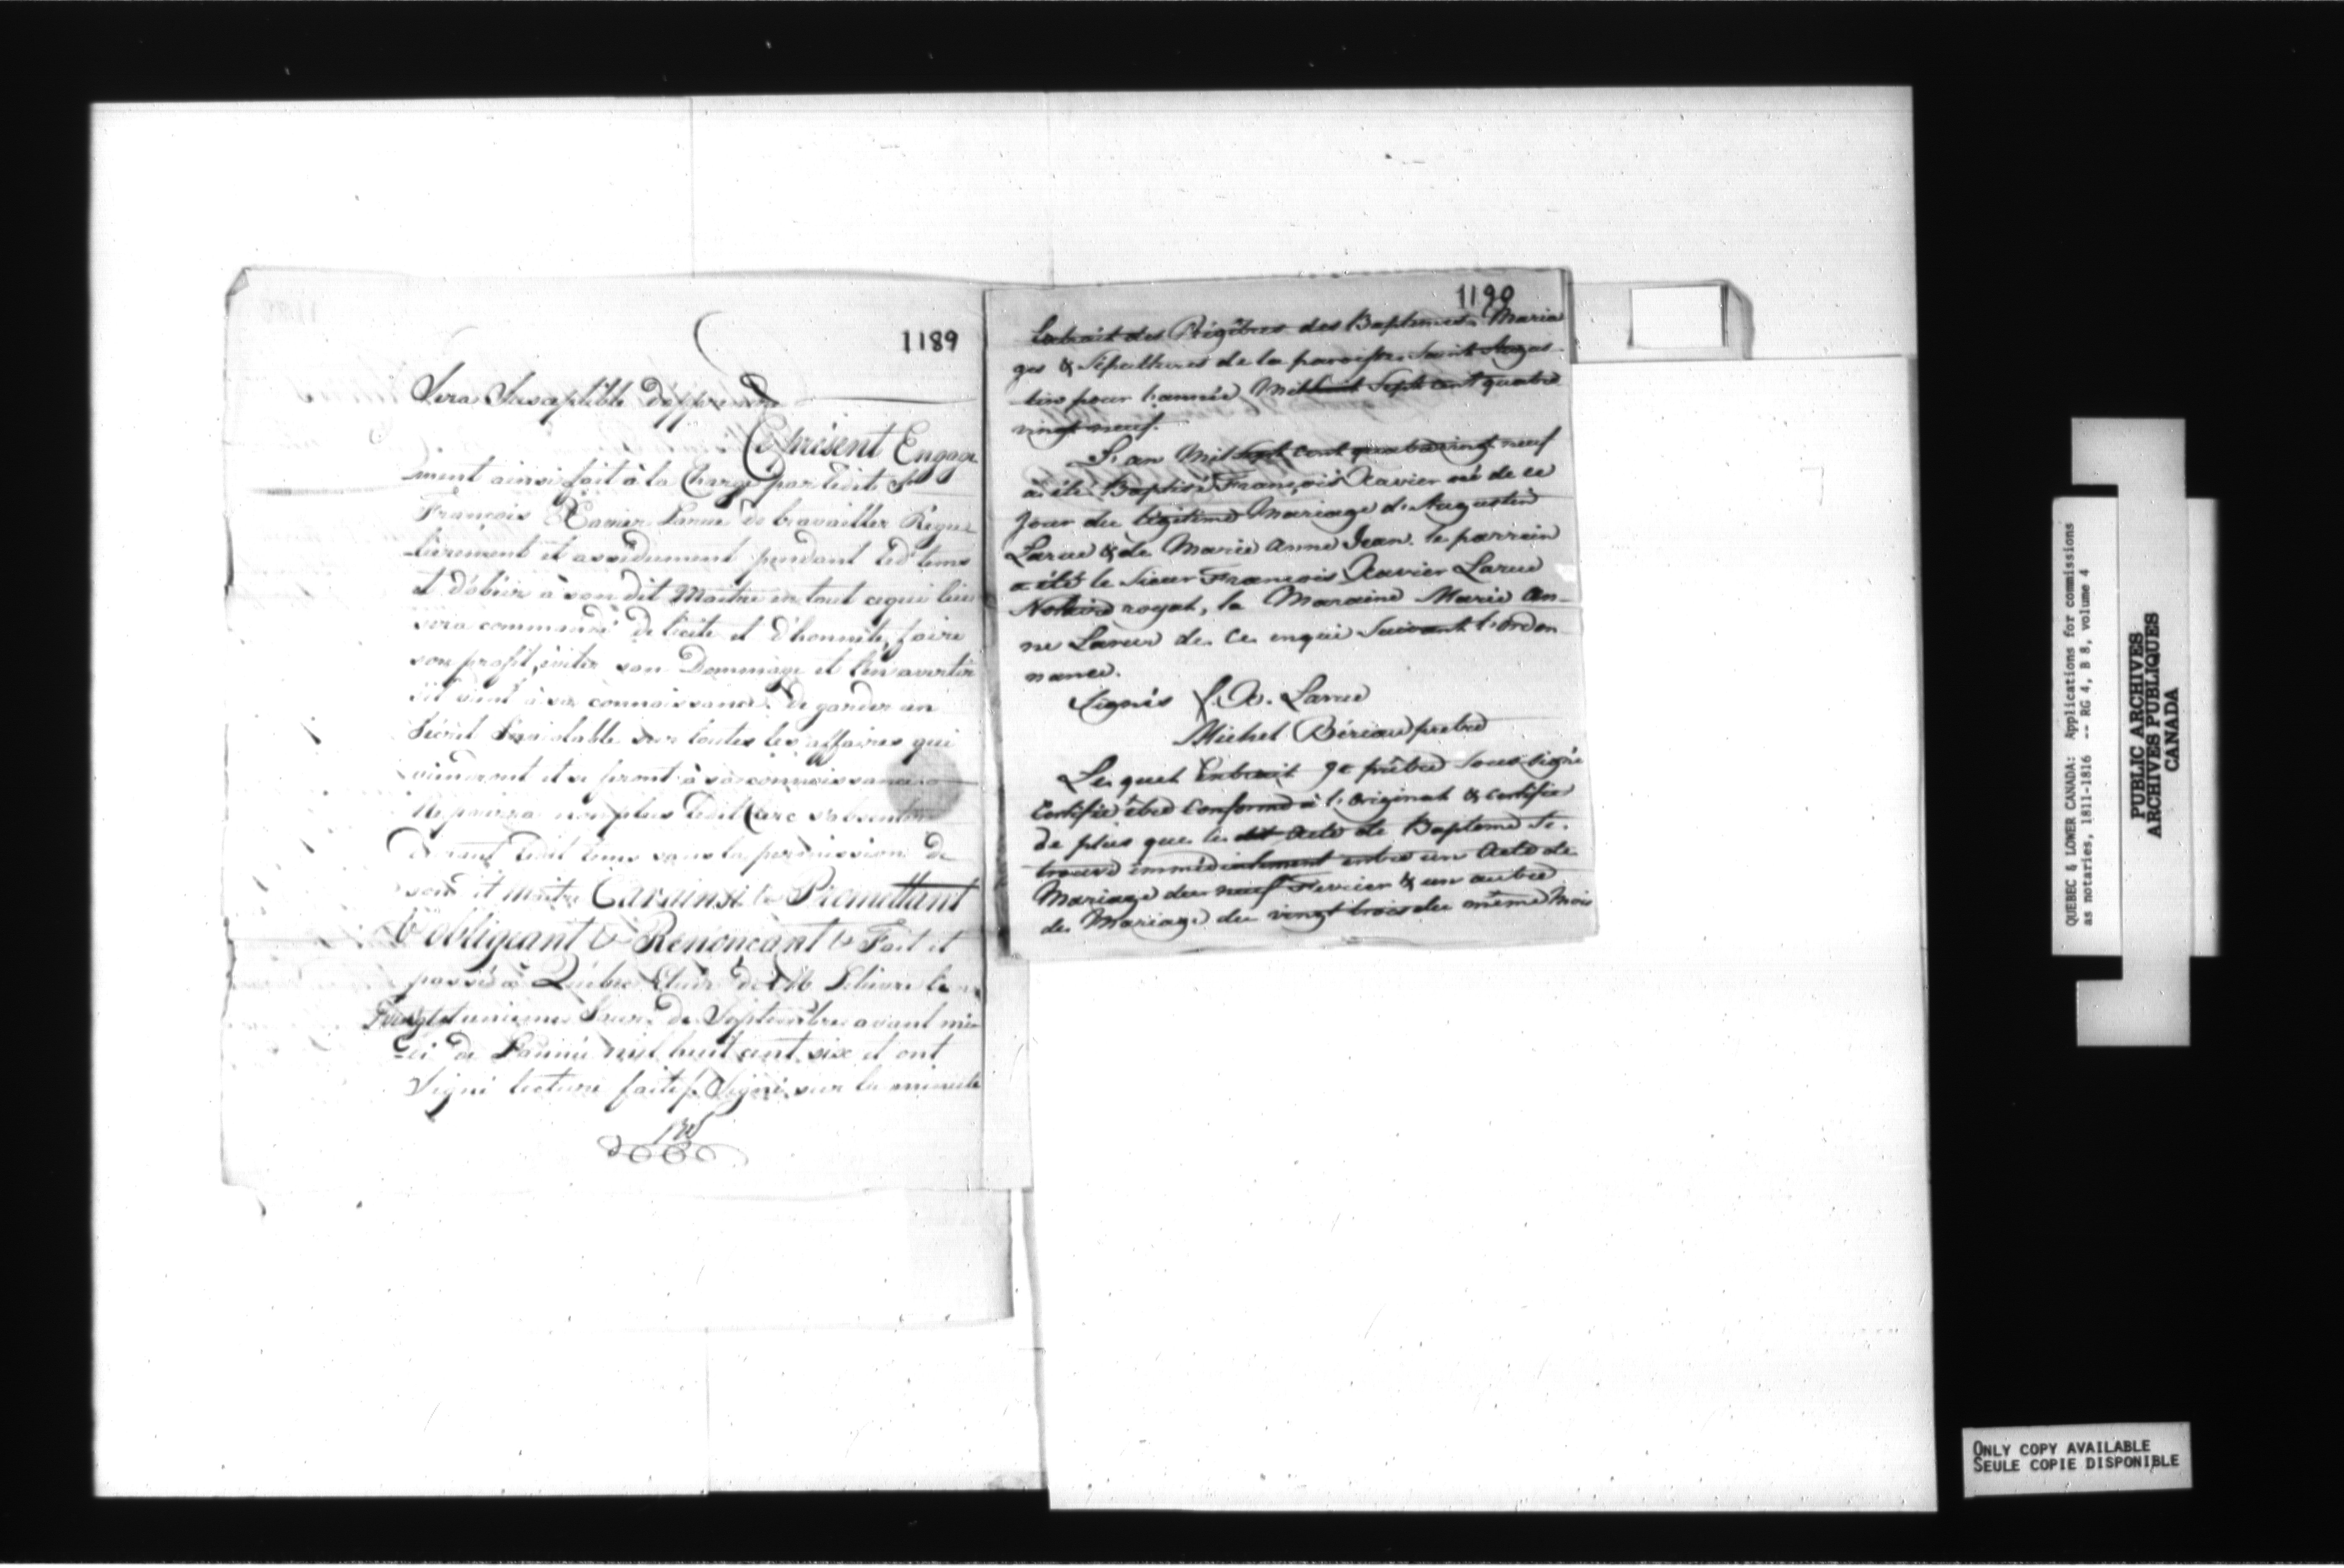 1189
Sera Susceptible d'apprendre
Ce présent Engage
ment ainsi fait à la Charge par ledit Sr
François Xavier Larue de travailler Régu
lièrement et assidument pendant led tems
et d'obéir à son dit Maitre en tout ce qui lui
sera commandé de licite et d'honnête, faire
son profit, éviter son Dommage et l'en avertir
s'il vient à sa connaissance. De garder un
Sécret inviolable sur toutes les affaires qui
viendront et se feront à sa connaissance
Ne pourra non plus ledit Clerc s'absenter
Durant ledit tems sans la permission de
son dit maitre Car ainsi &c Promettant
&c obligeant &c Renonçant &c Fait et
passé à Québec Etude de Me Lelievre le
Vingt unieme Jour de Septembre avant mi
di de L'année mil huit cent six et ont
Signé lecture faite Signé sur la minute
1190
Extrait des Régitres des Baptemes Maria
ges & Sépultures de la paroisse Saint Augus-
tin pour l'année Mil Sept cent quatre
vingt neuf.
L'an Mil Sept cent quatrevingt neuf
a été Baptisé François Xavier né de ce
Jour du légitime Mariage d'Augustin
Larue & de Marie Anne Jean. le parrein
a été le Sieur François Xavier Larue
Notaire royal, la Maraine Marie An-
ne Larue de ce enquis Suivant l'ordon
nance.
Signés F. X. Larue
Michel Bériau prêtre
Le quel Extrait Je prêtre Sous signé
Certifie être conforme à l'original & certifie
de plus que le dit Acte de Bapteme Se
trouve immédiatement entre un Acte de
Mariage du neuf Fevrier & un autre
de Mariage du vingt trois du même Mois
QUEBEC & LOWER CANADA: Applications for commissions
as notaries, 1811-1816 -- RG 4, B 8, volume 4
PUBLIC ARCHIVES
ARCHIVES PUBLIQUES
CANADA
ONLY COPY AVAILABLE
SEULE COPIE DISPONIBLE